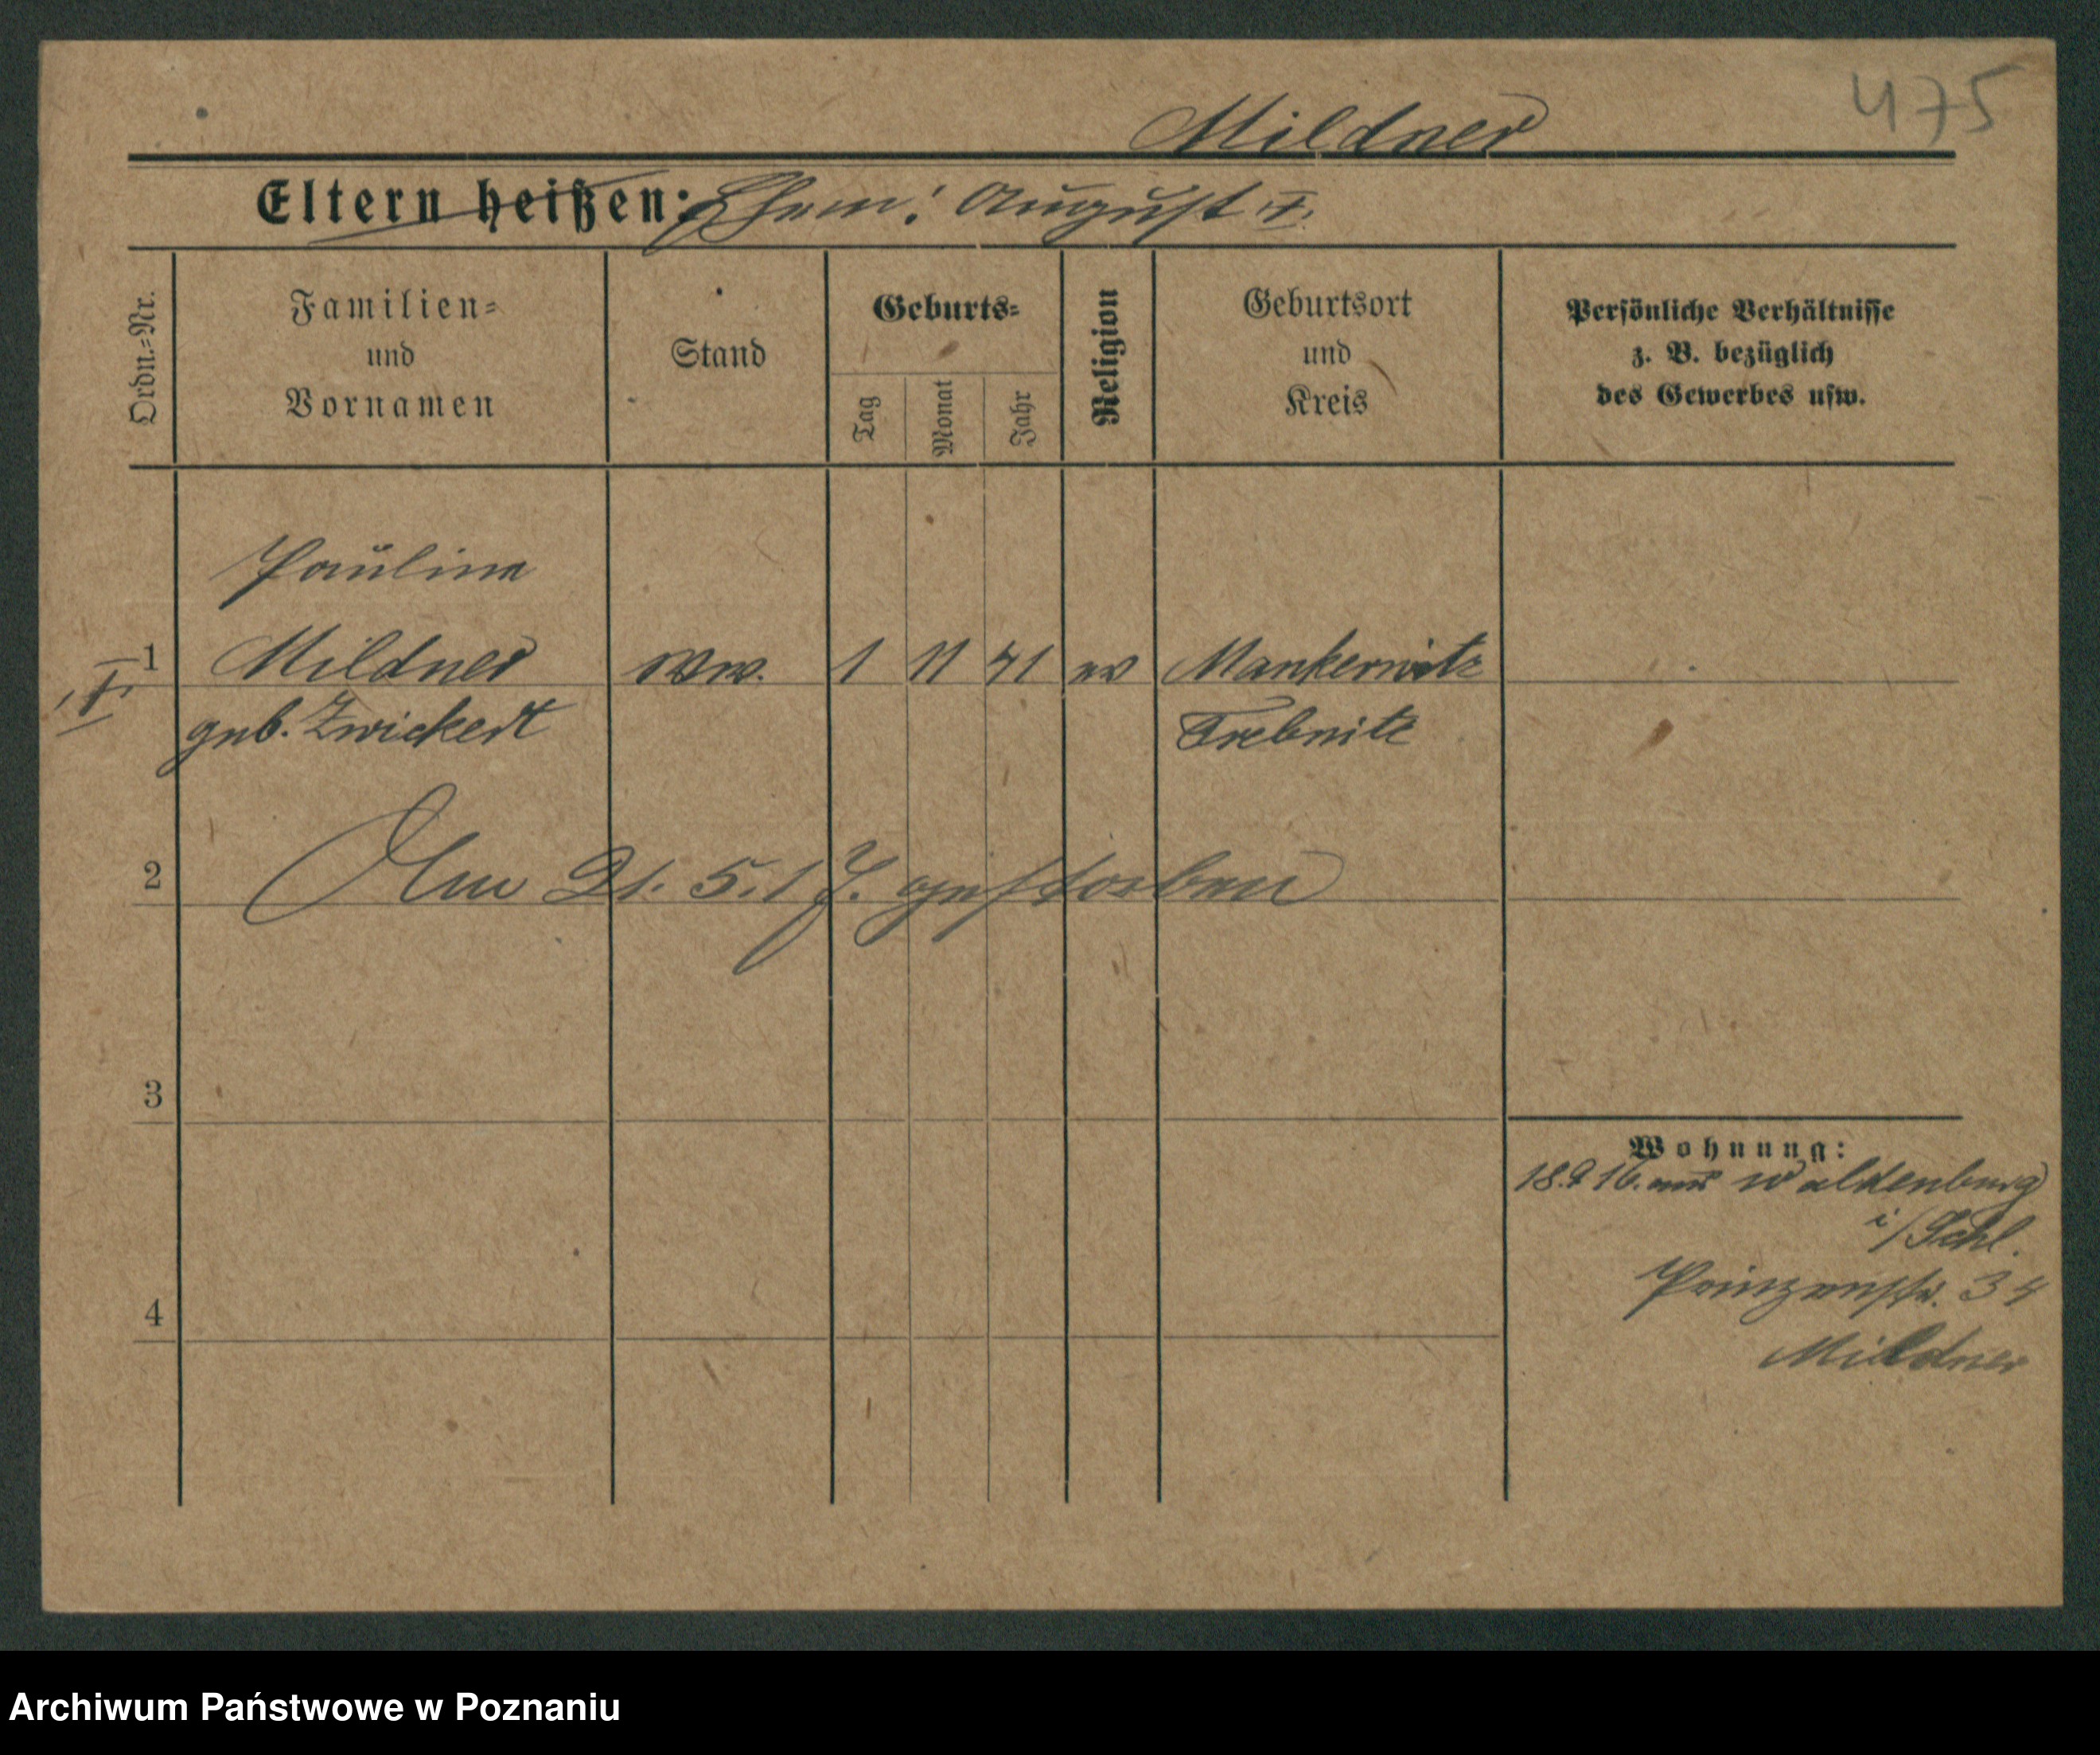 475
Mildner
Eltern heißen: Ehem: August †.
Ordn.=Nr.
Familien=
und
Vornamen
Stand
Geburts=
Tag
Monat
Jahr
Religion
Geburtsort
und
Kreis
Persönliche Verhältnisse
z. B. bezüglich
des Gewerbes usw.
Pauline
1 Mildner Ww. 1 11 41 ev Mankerwitz
geb. Zwickert Trebnitz
2 Am 21. 5. 17. gestorben
3
Wohnung:
18.9 16. aus Waldenburg
i/Schl.
Prinzenstr. 34
Mildner
4
Archiwum Państwowe w Poznaniu